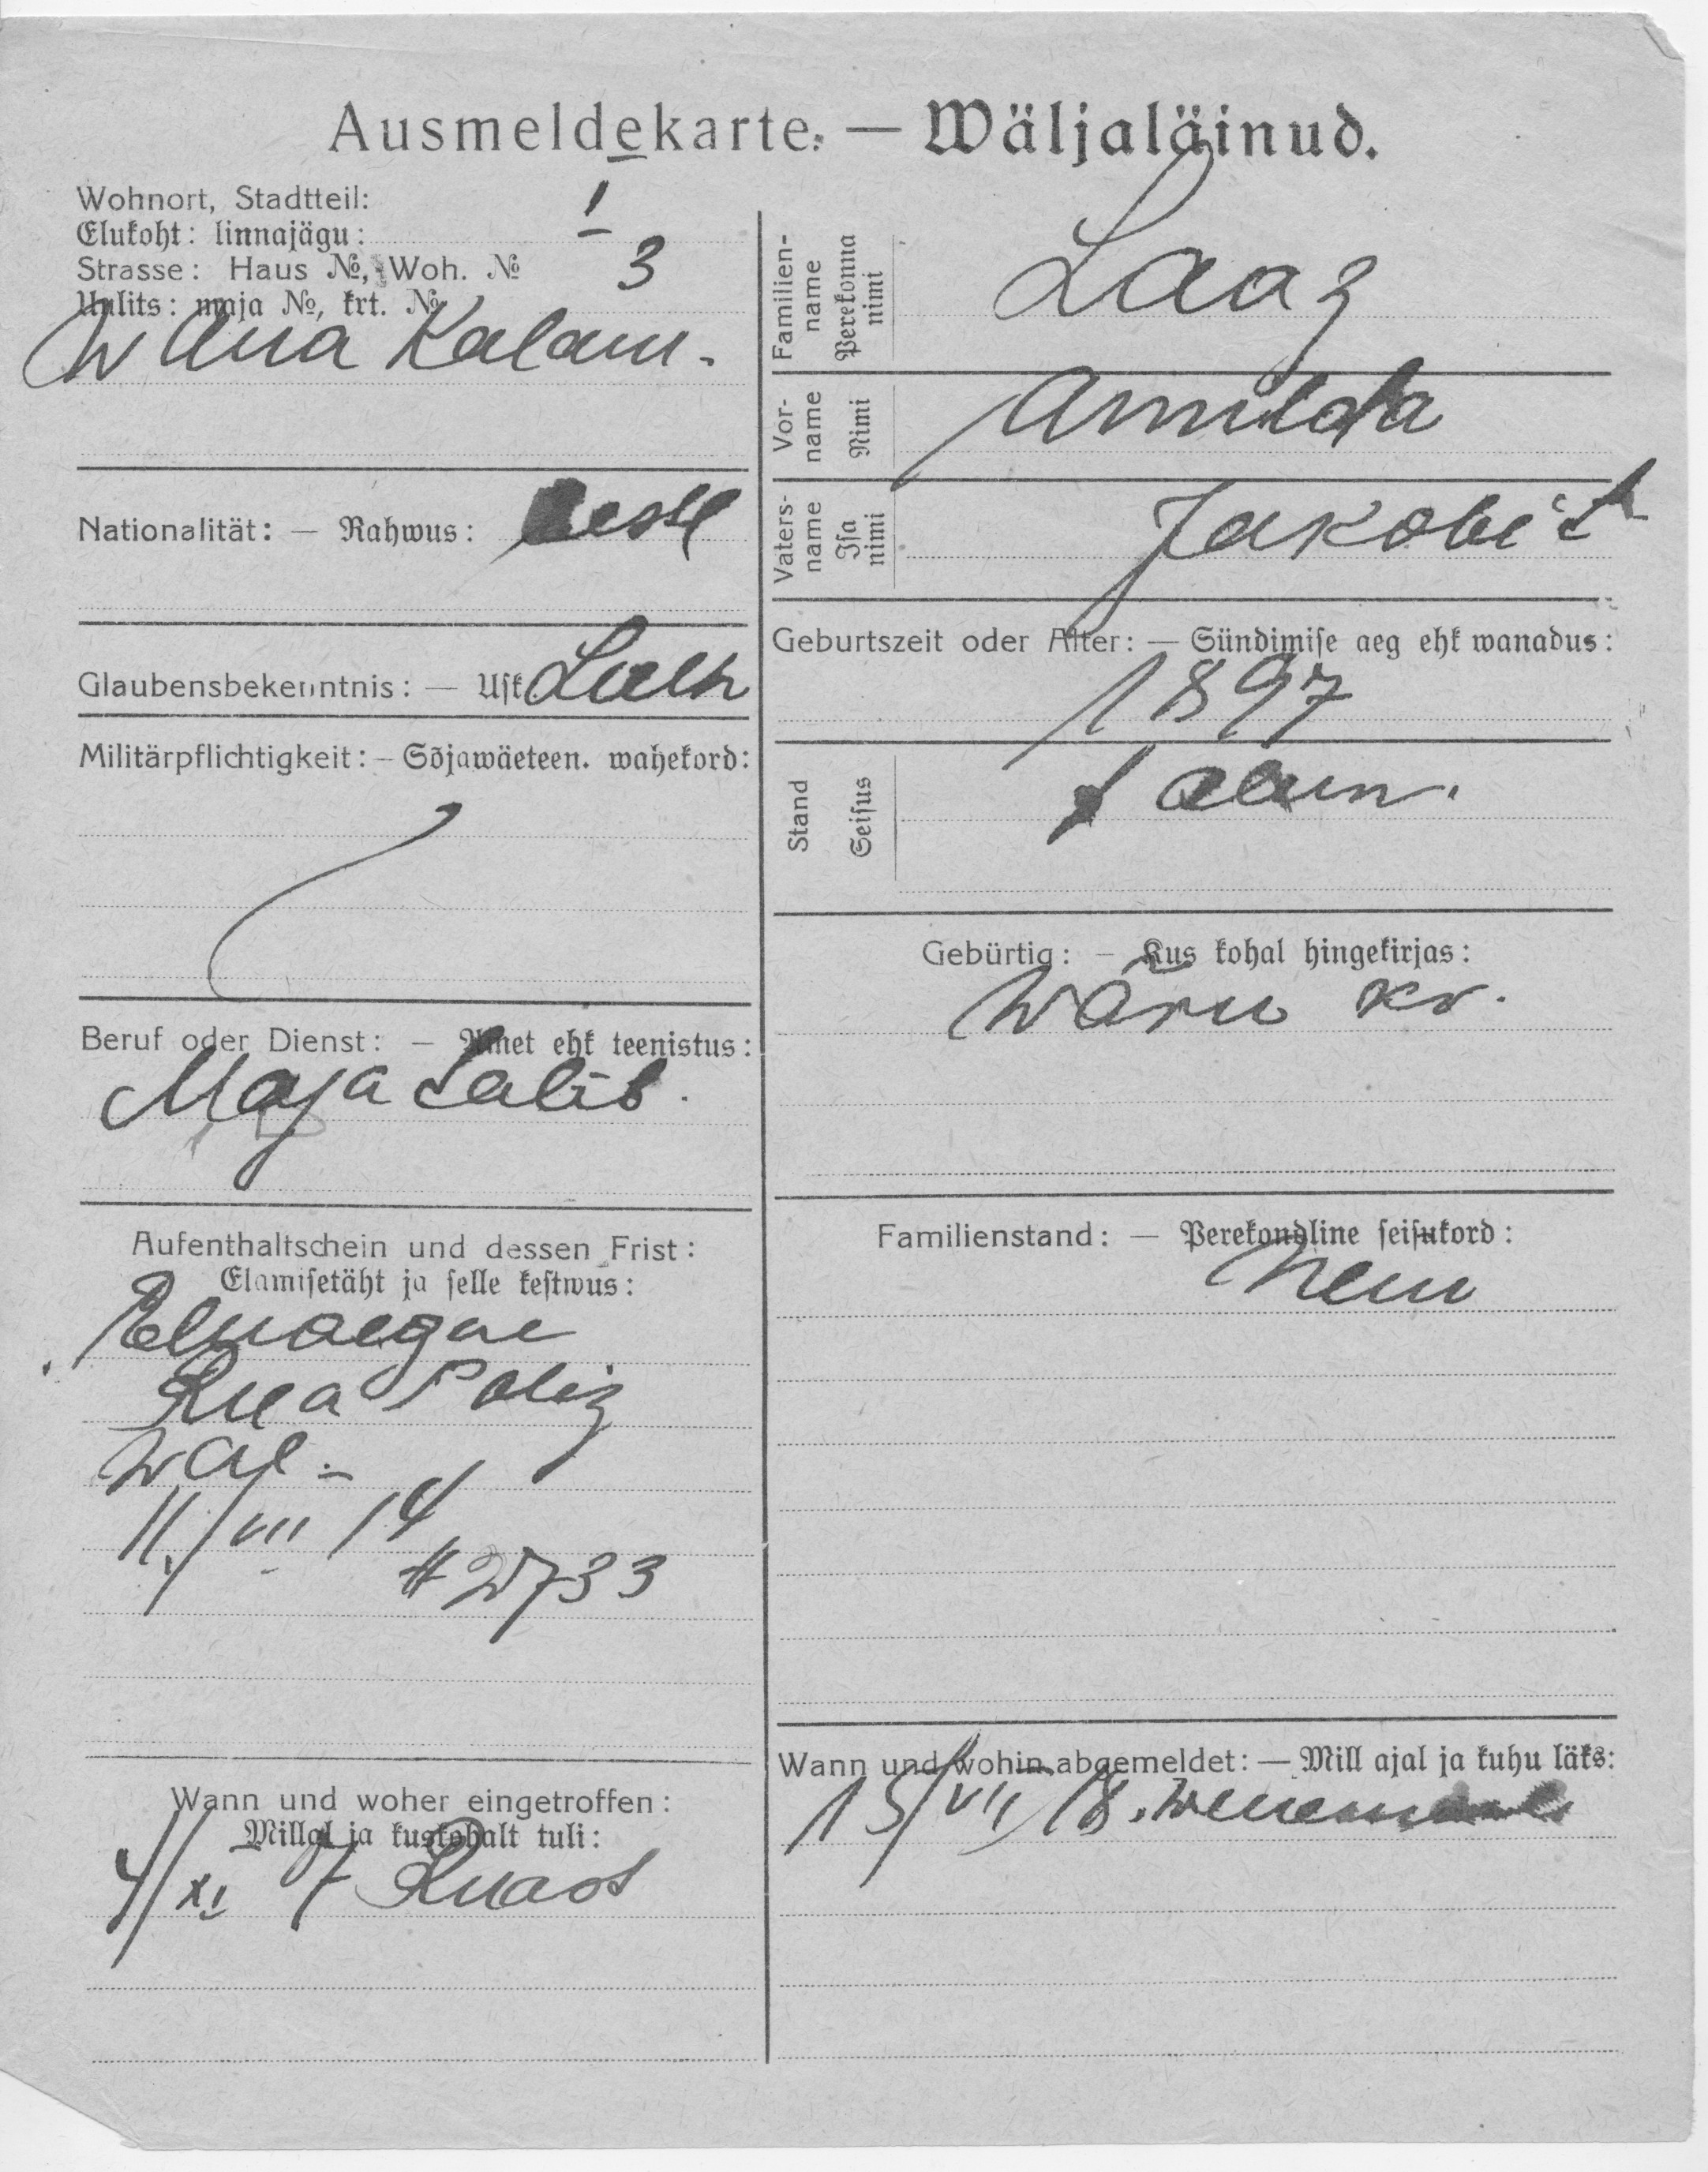 Ausmeldekarte. — Wäljaläinud.
Wohnort, Stadtteil:
Elukoht: linnajägu: I
Strasse: Haus №, Woh. № 3
Uulits: maja №, krt. №
Wana Kalam.
Nationalität: — Rahwus: Eesti
Glaubensbekenntnis: — Usk Luth
Militärpflichtigkeit: — Sõjawäeteen. wahekord:
Beruf oder Dienst: — Amet ehk teenistus:
Maja
Aufenthaltschein und dessen Frist:
Elamisetäht ja selle kestwus:
Eluaegne
Poliz
Wal.
11/VIII 14
# 2733
Wann und woher eingetroffen:
Millal ja kustkohalt tuli:
4/XI 7
Familien-
name
Perekonna
nimi
Laaz
Vor-
name
Nimi
Armilda
Vaters-
name
Isa
nimi
Jakobi t
Geburtszeit oder Alter: — Sündimise aeg ehk wanadus:
1897
Stand
Seisus
talun.
Gebürtig: — Kus kohal hingekirjas:
Wõru kr.
Familienstand: — Perekondline seisukord:
Wann und wohin abgemeldet: — Mill ajal ja kuhu läks:
15/VII 18. Wenemaale